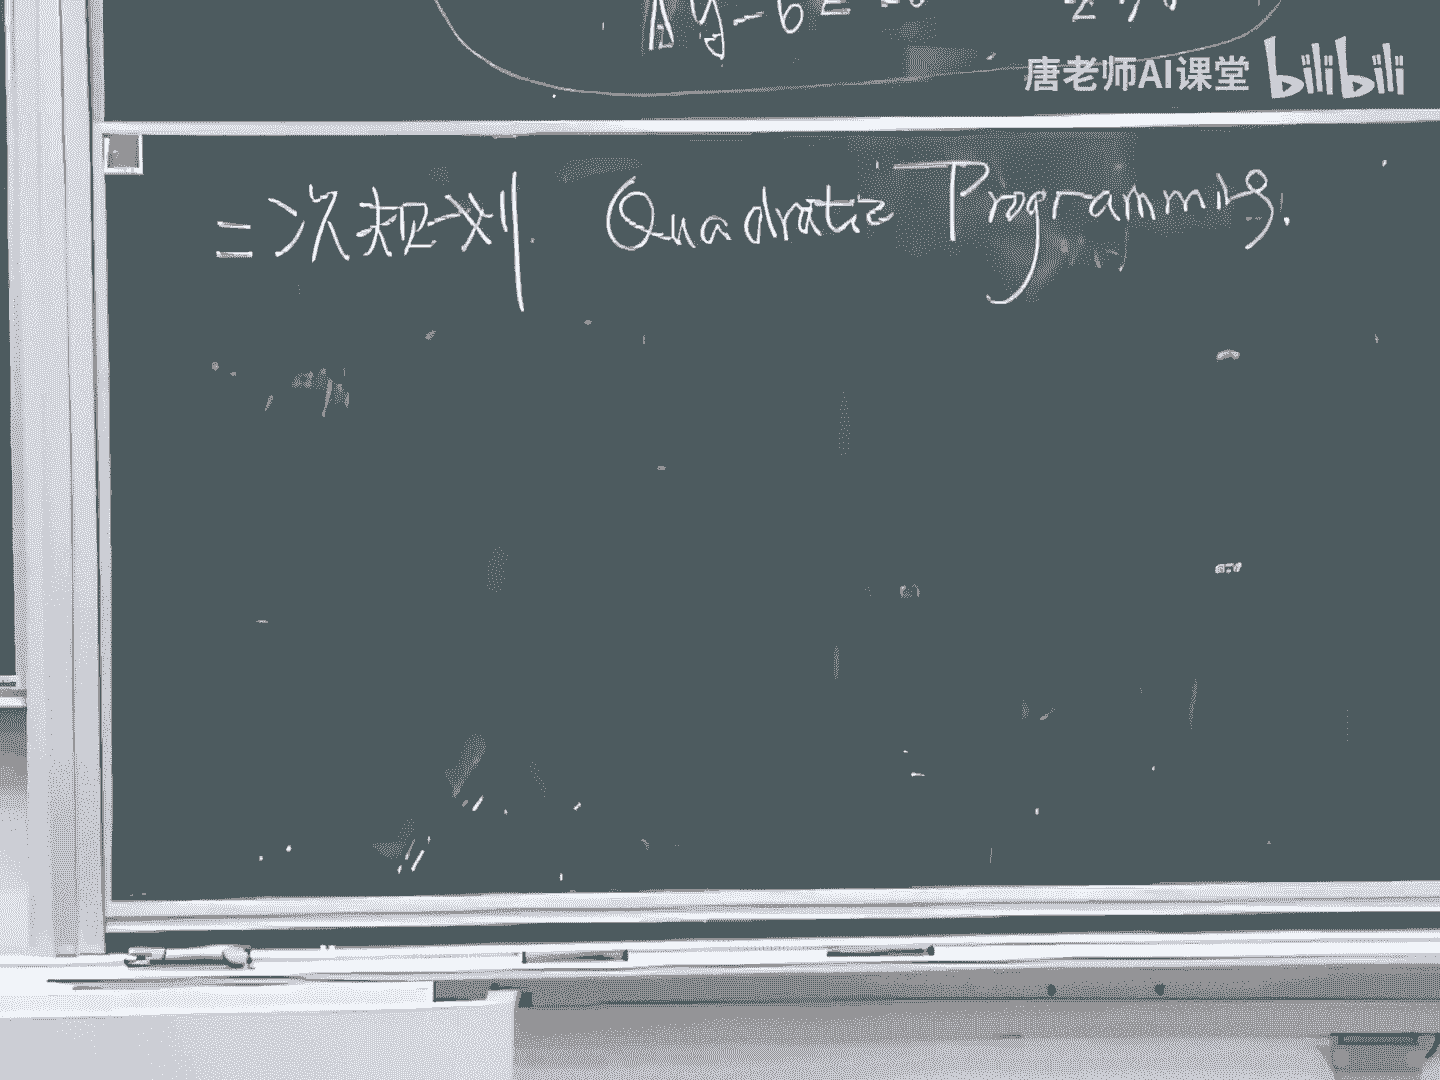 唐老师AI课堂 bilibili
二次规划 Quadratic Programming.